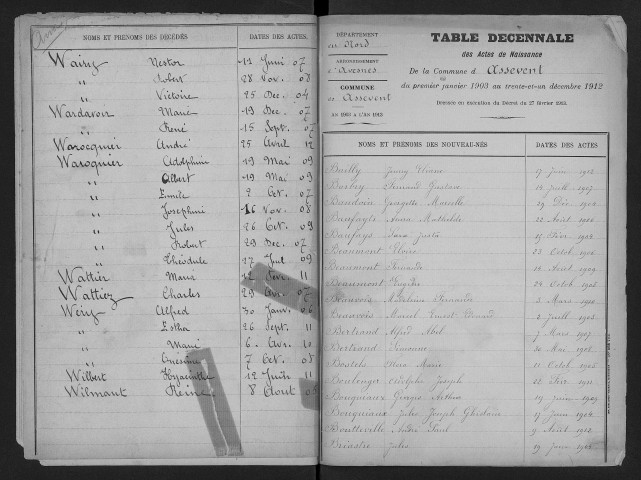 NOMS ET PRÉNOMS DES DÉCÉDÉS DATES DES ACTES.
Wairy Nestor 11 Juin 07
" Robert 28 Nov. 08
" Victoire 25 Dec. 04
Wardavoir Marie 19 Dec. 07
" René 15 Sept. 07
Warocquier André 25 Avril 12
Waroquier Adolphine 19 Mai 09
" Albert 19 Mai 09
" Emile 2 Oct. 07
" Josephine 16 Nov. 08
" Jules 26 Oct. 09
" Robert 29 Dec. 07
" Théodule 27 Juil 09
Wattier Maria 12 Fevr. 11
Wattiez Charles 29 Avr 07
Wéry Alfred 30 Janv. 06
" Estha 26 Sept. 11
" Marie 6 Avr. 10
" 7 Oct. 05
Wilbert Hyacinthe 12 Juin 11
Wilmant Reine 8 Aout
DÉPARTEMENT
du Nord
ARRONDISSEMENT
d'Avesnes
COMMUNE
de Assevent
AN 1903 A L'AN 1912
TABLE DECENNALE
des Actes de Naissance
De la Commune d'Assevent
du premier janvier 1903 au trente-et-un décembre 1912
Dressée en exécution du Décret du 27 février 1913.
NOMS ET PRÉNOMS DES NOUVEAU-NÉS DATES DES ACTES
Bailly Jenny Eliane 17 Juin 1912
Barbry Fernand Gustave 14 Juill 1907
Baudoin Georgette Marcelle 29 Déc 1912
Baufayts Anna Mathilde 22 Août
Baufays 15 Févr 1904
Beaumont 23 Octob 1906
Beaumont Fernande 14 Août 1909
Beaumont 24 Octob 1905
Beauvois Madeleine Fernande 3 Mars
Beauvois Marcel Ernest Edouard 2 Juill 1905
Bertrand Alfred Abel 7 Mars 1907
Bertrand Simonne 30 Mai 1908
Bostels Marie 11 Octob
Boulenger Adolphe Joseph 22 Févr 1911
Bouqueaux Georges Arthur 19 Juin 1909
Bouquiaux Jules Joseph Ghislain 17 Juin 1904
Boutteville André Paul 9 Août 1912
Briastre Jules 19 Juin